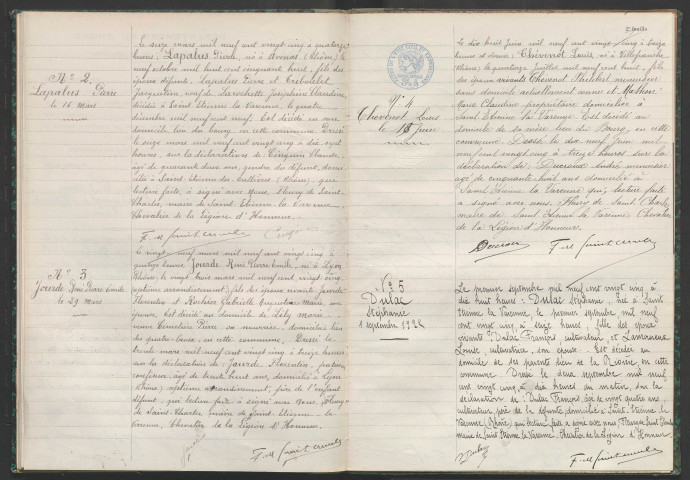 Nº 2
Lapalus Pierre
le 16 Mars
Le seize mars mil neuf cent vingt cinq à quatorze
heures, Lapalus Pierre, né à Avenas (Rhône), le
neuf octobre mil huit cent cinquante huit, fils des
époux défunts Lapalus Pierre et
Jacqueline, veuf de Larochette Josephine Claudine,
décédée à Saint Etienne la Varenne, le quatre
décembre mil neuf cent neuf. Est décédé en son
domicile, lieu du bourg en cette commune. Dressé
le seize mars mil neuf cent vingt cinq à dix sept
heures, sur la déclaration de Cinquin Claude,
âgé de quarante deux ans, gendre du défunt, domi-
cilié à Saint Etienne des Oullières (Rhône), qui
lecture faite, a signé avec Nous, Fleury de Saint
Charles, maire de Saint Etienne la Varenne,
Chevalier de la Légion d'Honneur.
Nº 3
Jourde René Pierre Emile
le 29 Mars
Le vingt neuf mars mil neuf cent vingt cinq, à
quatorze heures, Jourde René Pierre Emile, né à Lyon
Rhône, le vingt trois mars mil neuf cent vingt cinq
septième arrondissement, fils des époux vivants Jourde
Florentin et Gabrielle Augustine Marie, son
épouse, est décédé au domicile de
Pierre, sa nourrice, domiciliés lieu
des quatre-, en cette commune. Dressé le
trente mars mil neuf cent vingt cinq à heures
sur la déclaration de Jourde Florentin,
âgé de trente huit ans, domicilié à Lyon
(Rhône) septième arrondissement, père de l'enfant
défunt, qui lecture faite a signé avec Nous, Fleury
de Saint Charles maire de Saint Etienne la
Varenne, Chevalier de la Légion d'Honneur.
Nº 4
Thévenot Louis
le 18 Juin
Le dix huit Juin mil neuf cent vingt cinq à seize
heures, Thévenot Louis, né à Villefranche
(Rhône), le quatorze Juillet mil neuf cent huit, fils
des époux vivants Thévenot Philibert menuisier
sans domicile actuellement connu et Mathon
Marie Claudine propriétaire domiciliée à
Saint Etienne la Varenne. Est décédé au
domicile de sa mère lieu du Bourg, en cette
commune. Dressé le dix neuf Juin mil
neuf cent vingt cinq à treize heures sur la
déclaration de Ducroux André menuisier
âgé de cinquante huit ans domicilié à
Saint Etienne la Varenne qui, lecture faite
a signé avec nous Fleury de Saint Charles
maire de Saint Etienne la Varenne Chevalier
de la Légion d'Honneur.
Ducroux
Nº 5
Dulac
Stéphanie
1 septembre 1925
Le premier septembre mil neuf cent vingt cinq à
dix huit heures, Dulac Stéphanie, née à Saint
Etienne la Varenne, le premier septembre mil neuf
cent vingt cinq, à seize heures, fille des époux
vivants Dulac François, cultivateur, et
Louise, cultivatrice, son épouse. Est décédée au
domicile de ses parents lieu de la, en cette
commune. Dressé le deux septembre mil neuf
cent vingt cinq à dix heures du matin, sur la
déclaration de Dulac François âgé de vingt quatre ans,
cultivateur, père de la défunte, domicilié à Saint Etienne la
Varenne (Rhône) qui, lecture faite a signé avec nous, Fleury de Saint Charles
maire de Saint Etienne la Varenne, Chevalier de la Légion d'Honneur